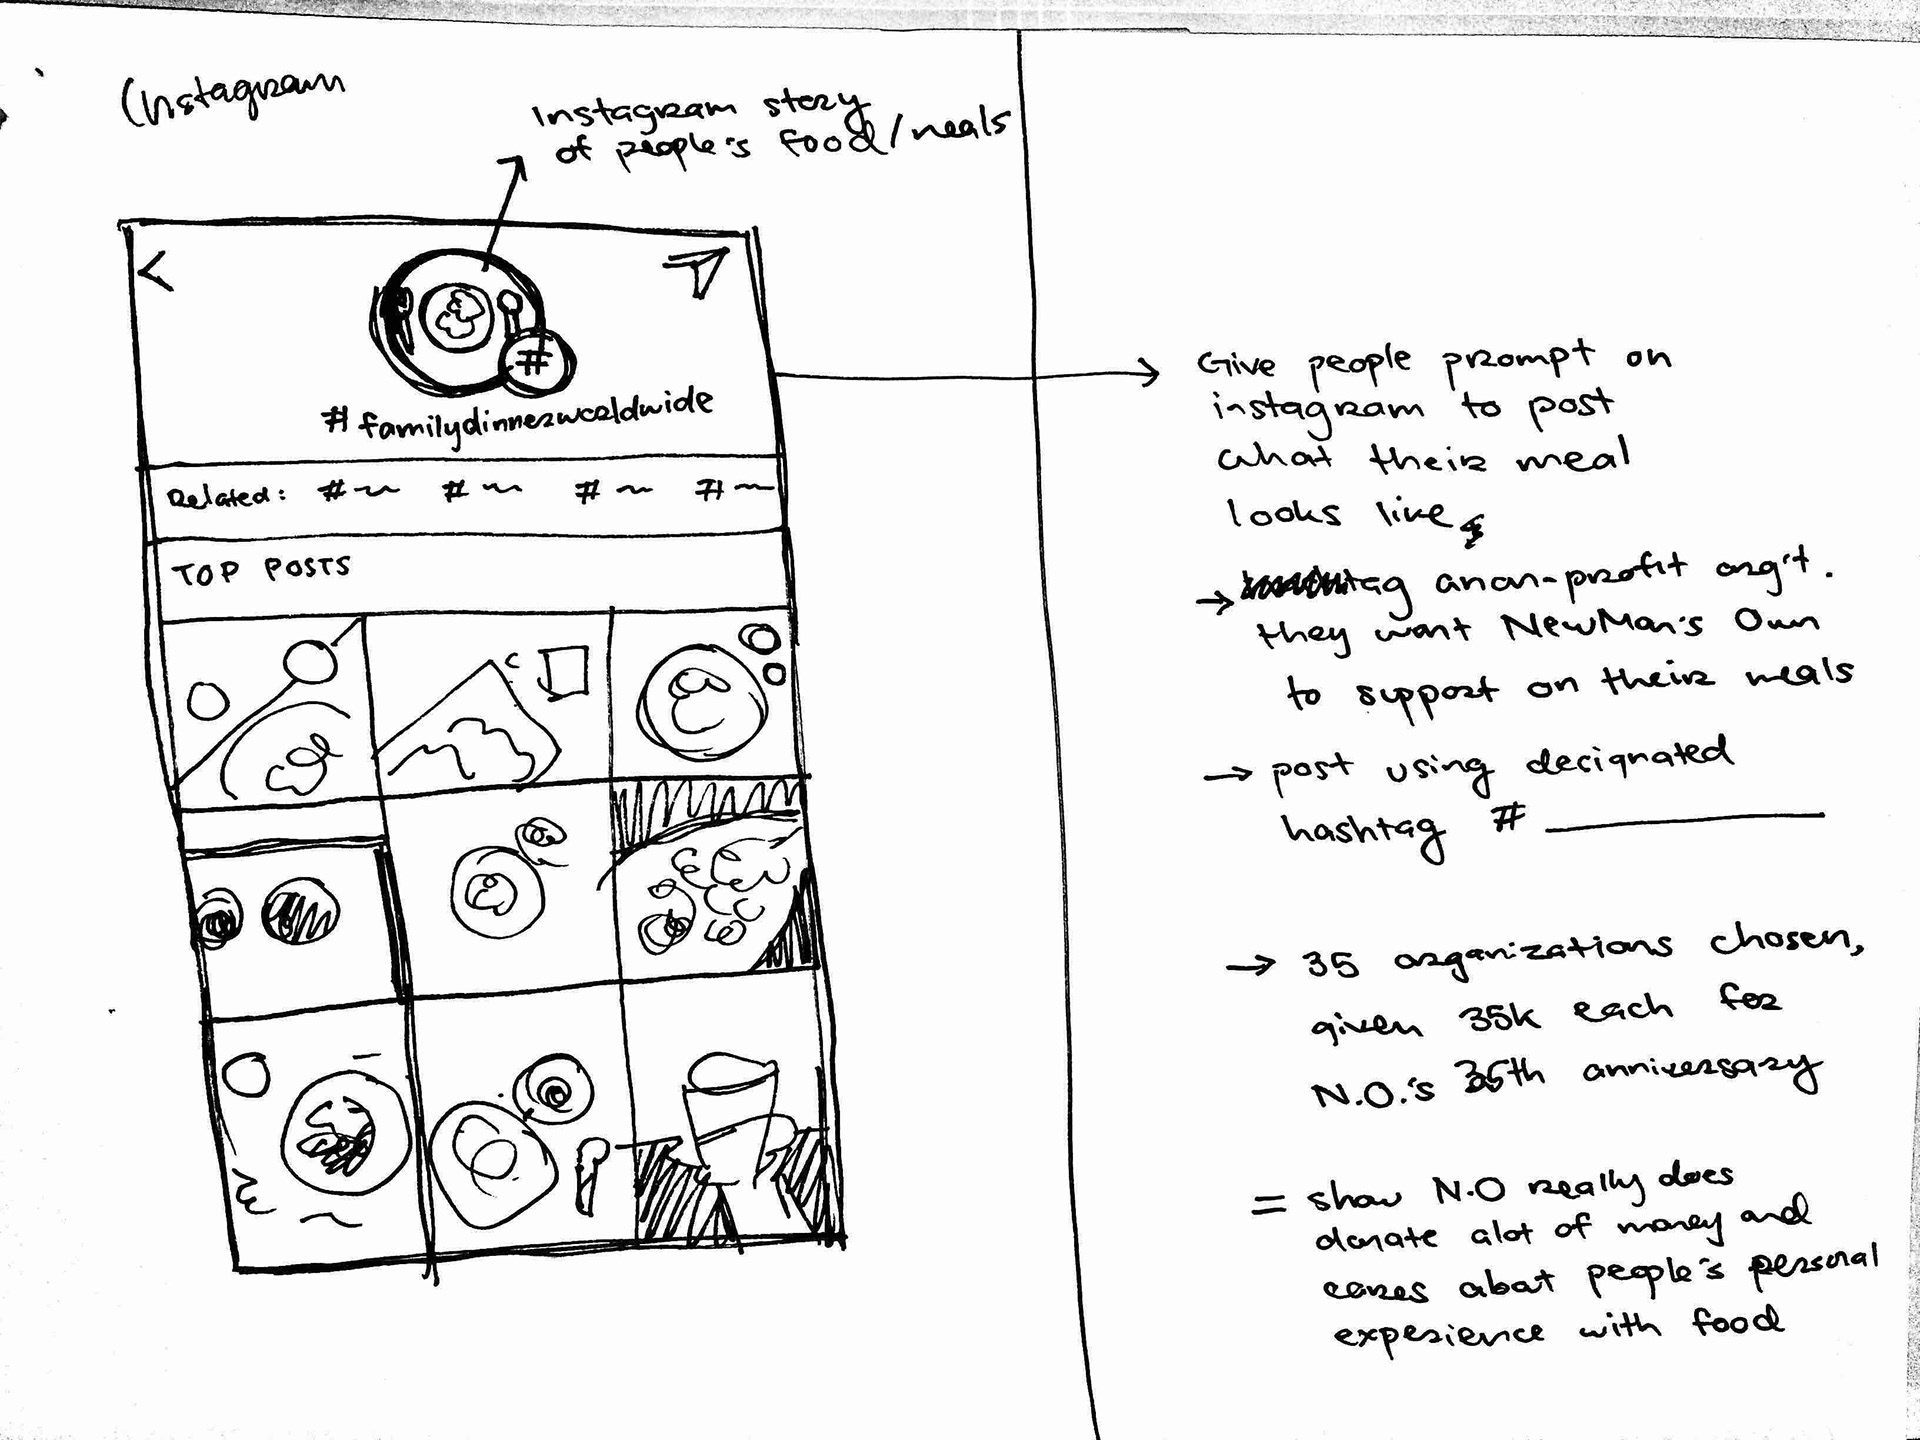 Instagram
Instagram story
of people's food/meals
#
#familydinnerworldwide
Related: # # # #
TOP POSTS
Give people prompt on
instagram to post
what their meal
looks like,
→ tag a non-profit org't.
they want NewMan's Own
to support on their meals
→ post using designated
hashtag # ____________
→ 35 organizations chosen,
given 35k each for
N.O.'s 35th anniversary
= show N.O really does
donate alot of money and
cares about people's personal
experience with food